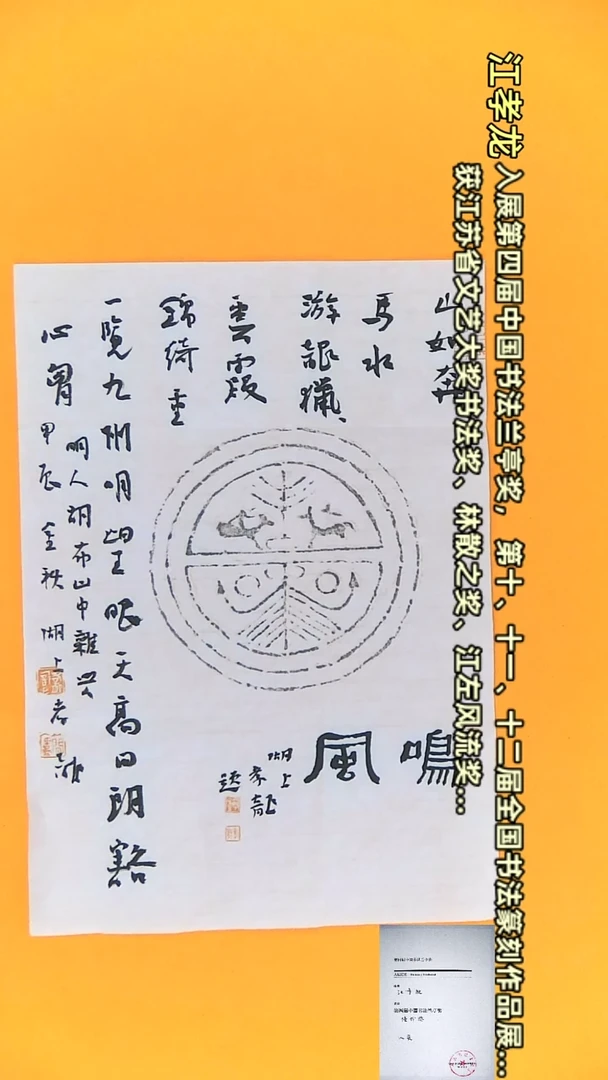 江孝龙 入展第四届中国书法兰亭奖，第十、十一、十二届全国书法篆刻作品展...
获江苏省文艺大奖书法奖、林散之奖、江左风流奖...
山如奔
馬水
游龍獵
雲霞
錦綺重
一覽九州明望眼天高日朗豁
心胷
明人胡布山中雜興
甲辰金秋湖上孝龍
鳴
風
湖上
孝龍
題